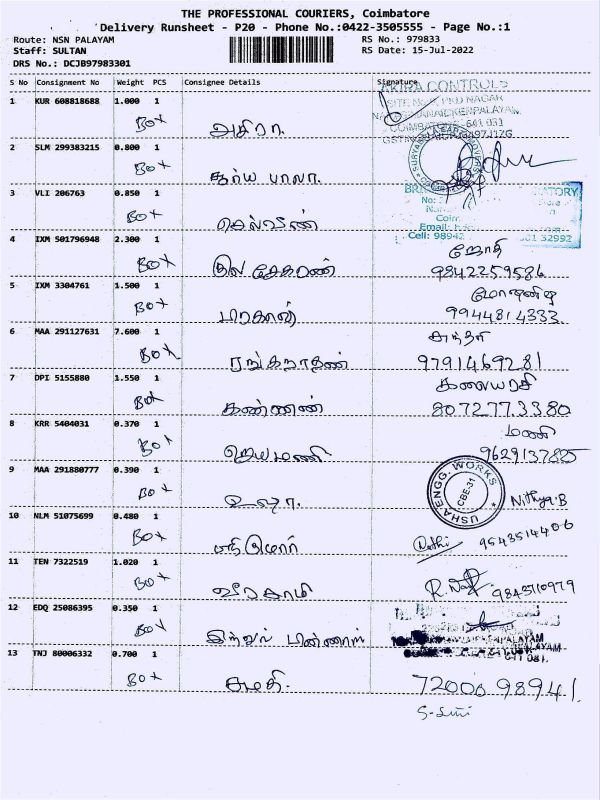 THE PROFESSIONAL COURIERS, Coimbatore
Delivery Runsheet - P20 - Phone No.:0422-3505555 - Page No.:1
Route: NSN PALAYAM RS No.: 979833
Staff: SULTAN RS Date: 15-Jul-2022
DRS No.: DCJB97983301
S No Consignment No Weight PCS Consignee Details Signature
AKIRA CONTROLS
1 KUR 608818688 1.000 1
BOX அகிரா.
COIMBATORE - 641 031
2 SLM 299383215 0.800 1
BOX சூர்ய பாலா.
3 VLI 206763 0.850 1
BOX செல்வின்
4 IXM 501796948 2.300 1 ஜோதி
BOX குல சேகரன் 9842259586
5 IXM 3304761 1.500 1
BOX பரகாஷ் 9944814333
6 MAA 291127631 7.600 1
BOX ரங்கநாதன் 9791469281
7 DPI 5155880 1.550 1 கலையரசி
BOX கண்ணன் 8072773380
8 KRR 5404031 0.370 1 மணி
BOX ஜெயமணி 9629137825
9 MAA 291880777 0.390 1 USHA ENGG. WORKS CBE-31
BOX உஷா. Nithya.B
10 NLM 51075699 0.480 1
BOX 9543514406
11 TEN 7322519 1.020 1
BOX 9843710979
12 EDQ 25086395 0.350 1
BOX
13 TNJ 80006332 0.700 1
BOX சுமதி. 7200098941